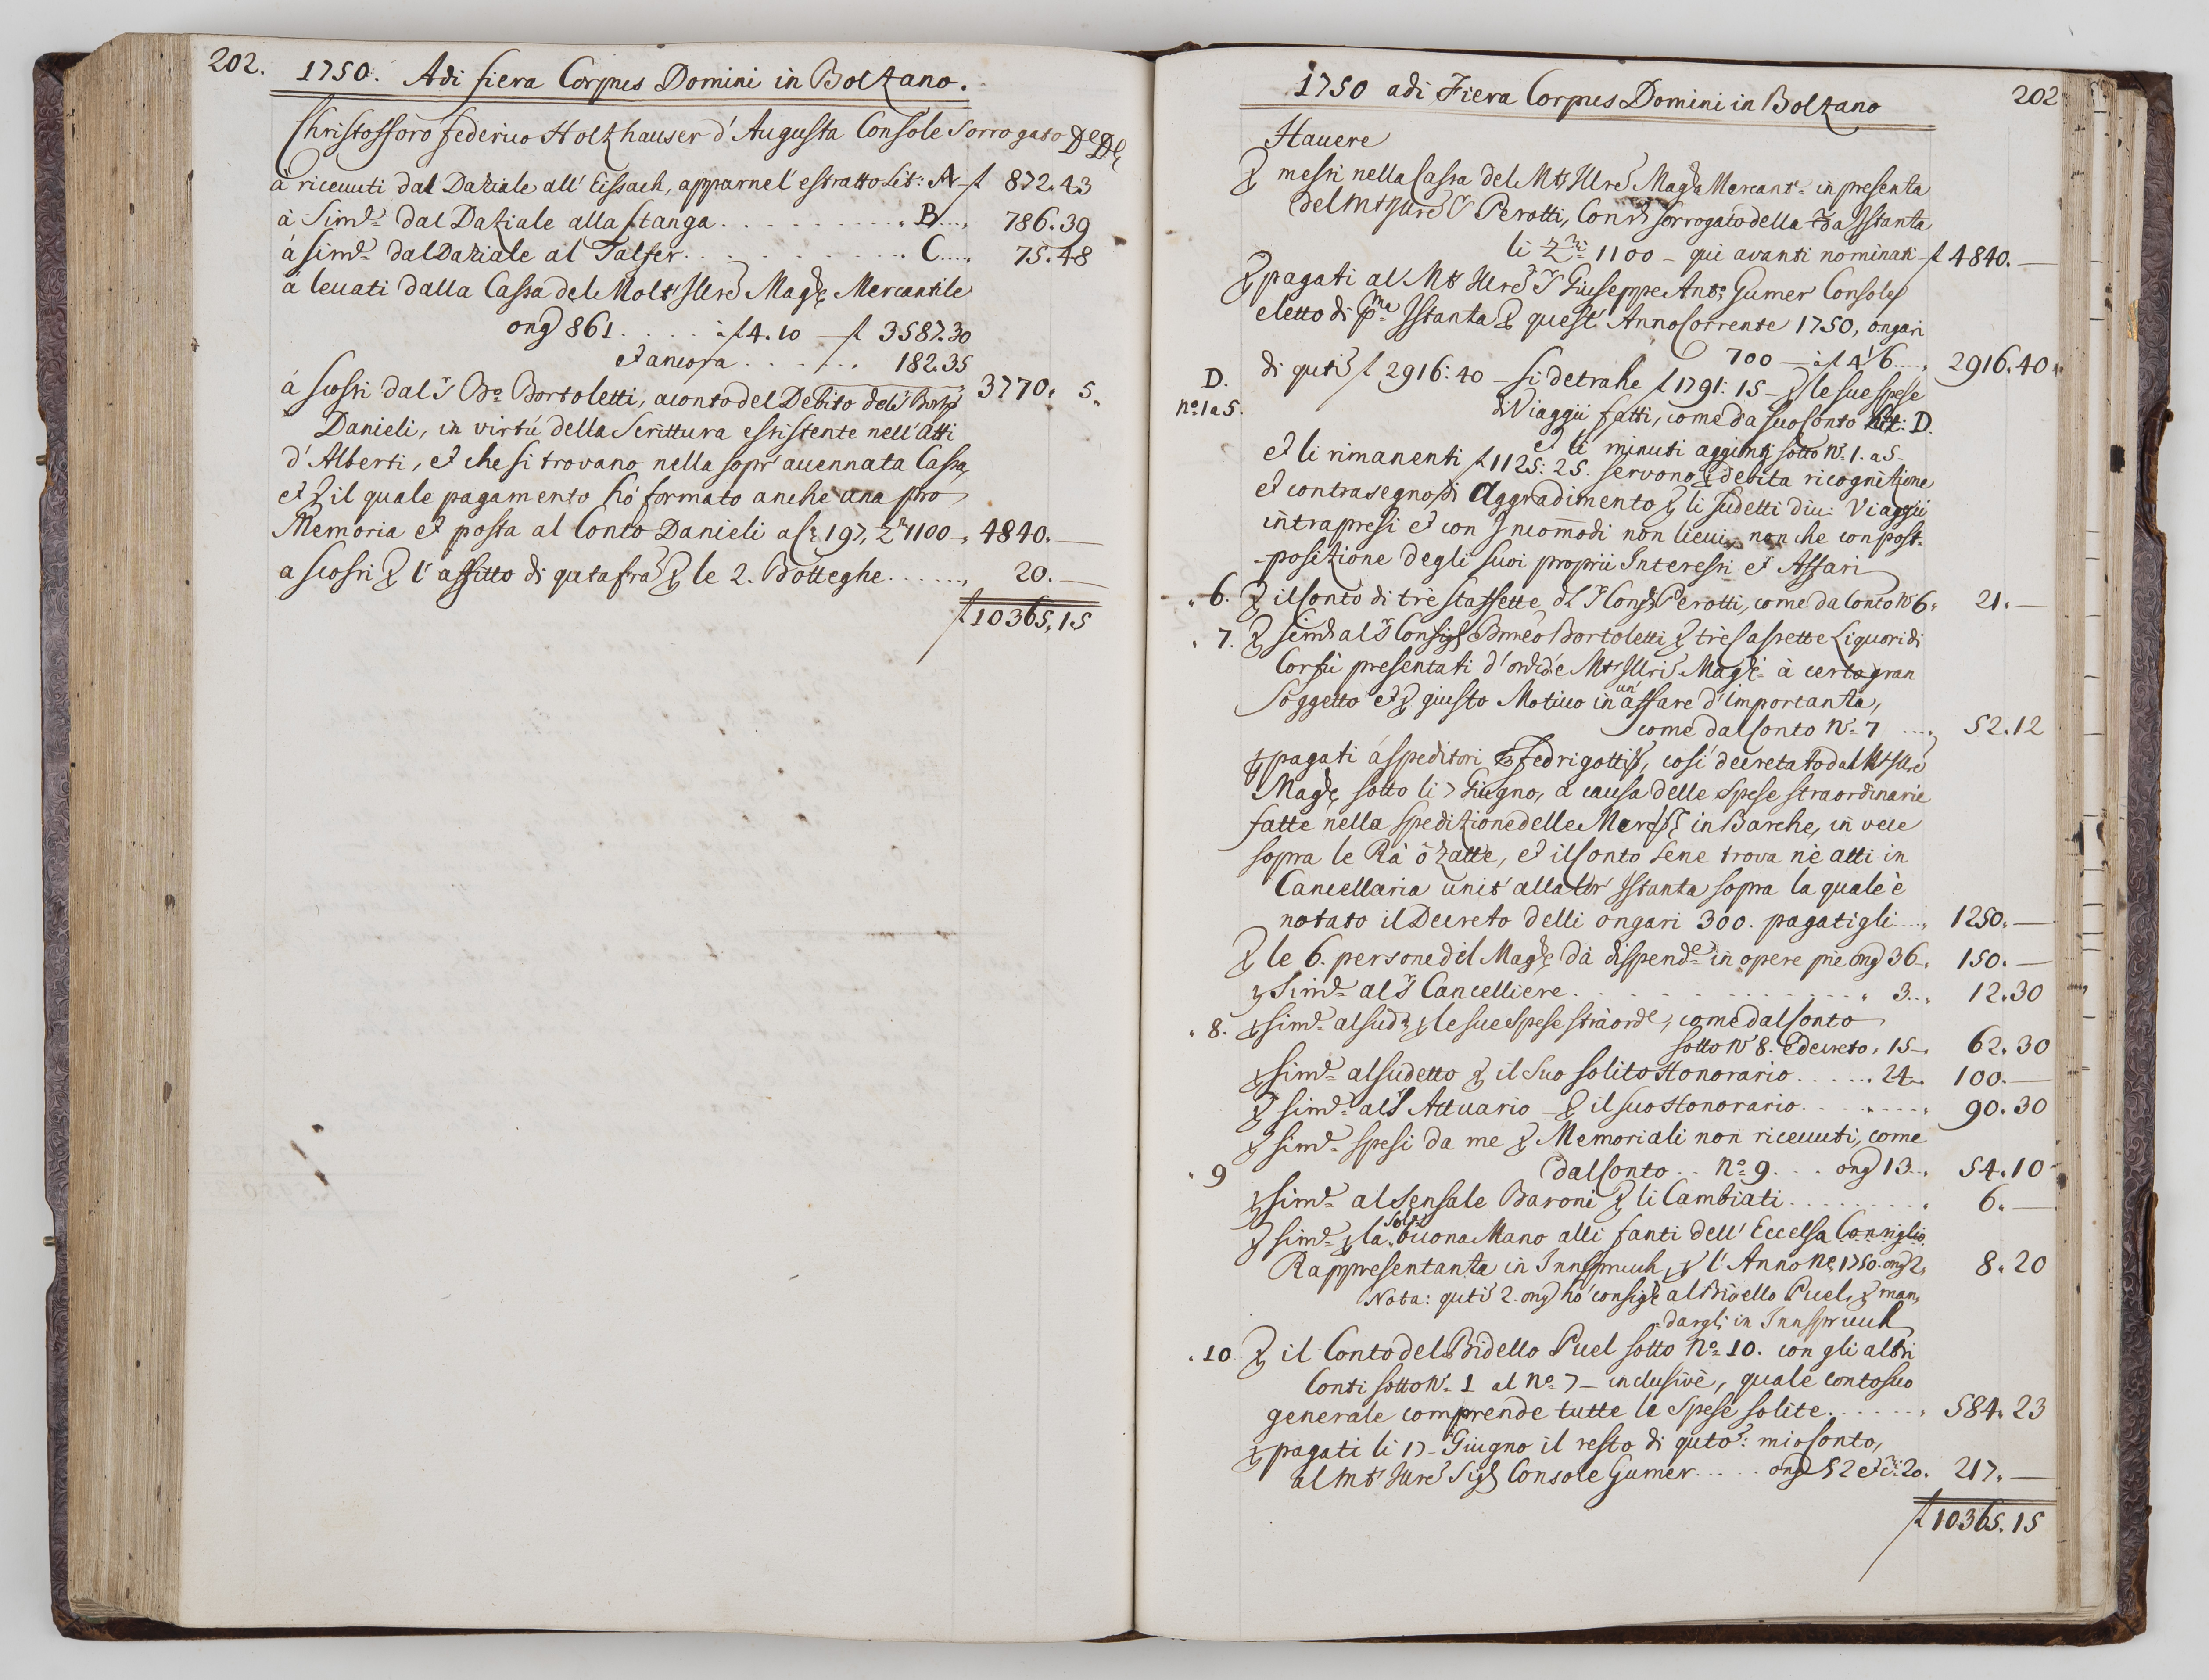 202. 1750. Adi fiera Corpus Domini in Bolzano.
Christofforo federico Holzhauser d'Augusta Console Sorrogato
à riceuuti dal Daziale all' Eissach, apparnel' estratto Lit: A – f 872.43
à Simle dal Daziale alla Stanga . . . . . . . . . . B . . . . 786.39
à simle dal Daziale al Talfer . . . . . . . . . . C . . . . 75.48
à leuati dalla Cassa del Molt' Illre Magle Mercantile
ong 861 . . . . . à f 4.10 – f 3587.30
et ancora . . . . . . . 182.35
3770. 5.
à scossi dal Sr Bo Bortoletti, aconto del Debito del
Danieli, in virtú della Scrittura esistente nell' atti
d'Alberti, et che si trovano nella sopr' auennata Cassa,
et p il quale pagamento hó formato anche una pro
Memoria et posta al Conto Danieli a 197, Zri 1100 –, 4840. –
a scossi p l'affitto di qutafra p le 2. Botteghe . . . . . . , 20. –
f 10365.15
1750 adi Fiera Corpus Domini in Bolzano 202
Hauere
p messi nella Cassa del Mto Illre Magla Mercante in presenza
del Mto Illre Sr Perotti, Conse sorrogato della Istanza
li Zri 1100 – qui avanti nominati – f 4840. –
p pagati al Mto Illre Sr Giuseppe Anto Gumer Console
eletto di pma Istanza p quest' Anno Corrente 1750, ongari
700 – à f 4 1/6 . . . . , 2916.40
D. di quti f 2916:40 – si detrahe f 1791:15 – p le sue spese
no 1 a 5. di Viaggii fatti, come da suo Conto Litt: D.
et li minuti aggionti sotto No 1. a 5 –
et li rimanenti f 1125:25. servono p debita ricognitione
et contrasegno di Aggradimento p li sudetti diu: Viaggii
intrapresi et con Incommodi non lieui, non che con post-
-positione degli suoi proprii Interessi et Affari
6. p il Conto di tré staffette Perotti, come da Conto No 6, 21. –
7. p simle al Sr Bmeo Bortoletti p tré cassette Liquori di
Corfù presentati Mto Illre Magle à certo gran
Soggetto et p giusto Motiuo in un' affare d'importanza,
come dal Conto No 7 . . . . , 52.12
p pagati á speditori Fedrigotti, cosí decretato dal Mto Illre
Magle sotto li 7 Giugno, a causa delle Spese straordinarie
fatte nella speditione delle in Barche, in vece
sopra le Rà ò Zatte, et il Conto sene trova nè atti in
Cancellaria unit' alla lor' Istanza sopra la quale è
notato il Decreto delli ongari 300. pagatigli . . . , 1250. –
p le 6. persone del Magle dà dispende in opere pie ong 36 –, 150. –
p Simle al Sr Cancelliere . . . . . . . . . . . . 3 . . , 12.30
8. p simle al sudo p le sue Spese straorde, come dal Conto
sotto No 8. e decreto, 15 –, 62.30
p simle al sudetto p il suo solito Honorario . . . . . . 24 –, 100. –
p simle al Sr Attuario – p il suo Honorario . . . . . . . . 90.30
p simle spesi da me p Memoriali non riceuuti, come
9 dal Conto . . No 9 . . . ong 13 . . , 54.10
p simle al Sensale Baroni p li Cambiati . . . . . . . . , 6. –
p simle p la solita buona Mano alli fanti dell' Eccelsa Consiglio
Rappresentanza in Innspruck, p l'Anno 1750. ong 2, 8.20
Nota: quti 2. ong hó consigti al Bidello Puel, p man-
dargli in Innspruck
10 p il Conto del Bidello Puel sotto No 10. con gli altri
Conti sotto No 1 al No 7 – inclusivè, quale conto suo
generale comprende tutte le Spese solite . . . . . . , 584.23
p pagati li 17 – Giugno il resto di quto: mio Conto,
al Mto Illre Sigr Console Gumer . . . . . ong 52 et Xri: 20. 217. –
f 10365.15